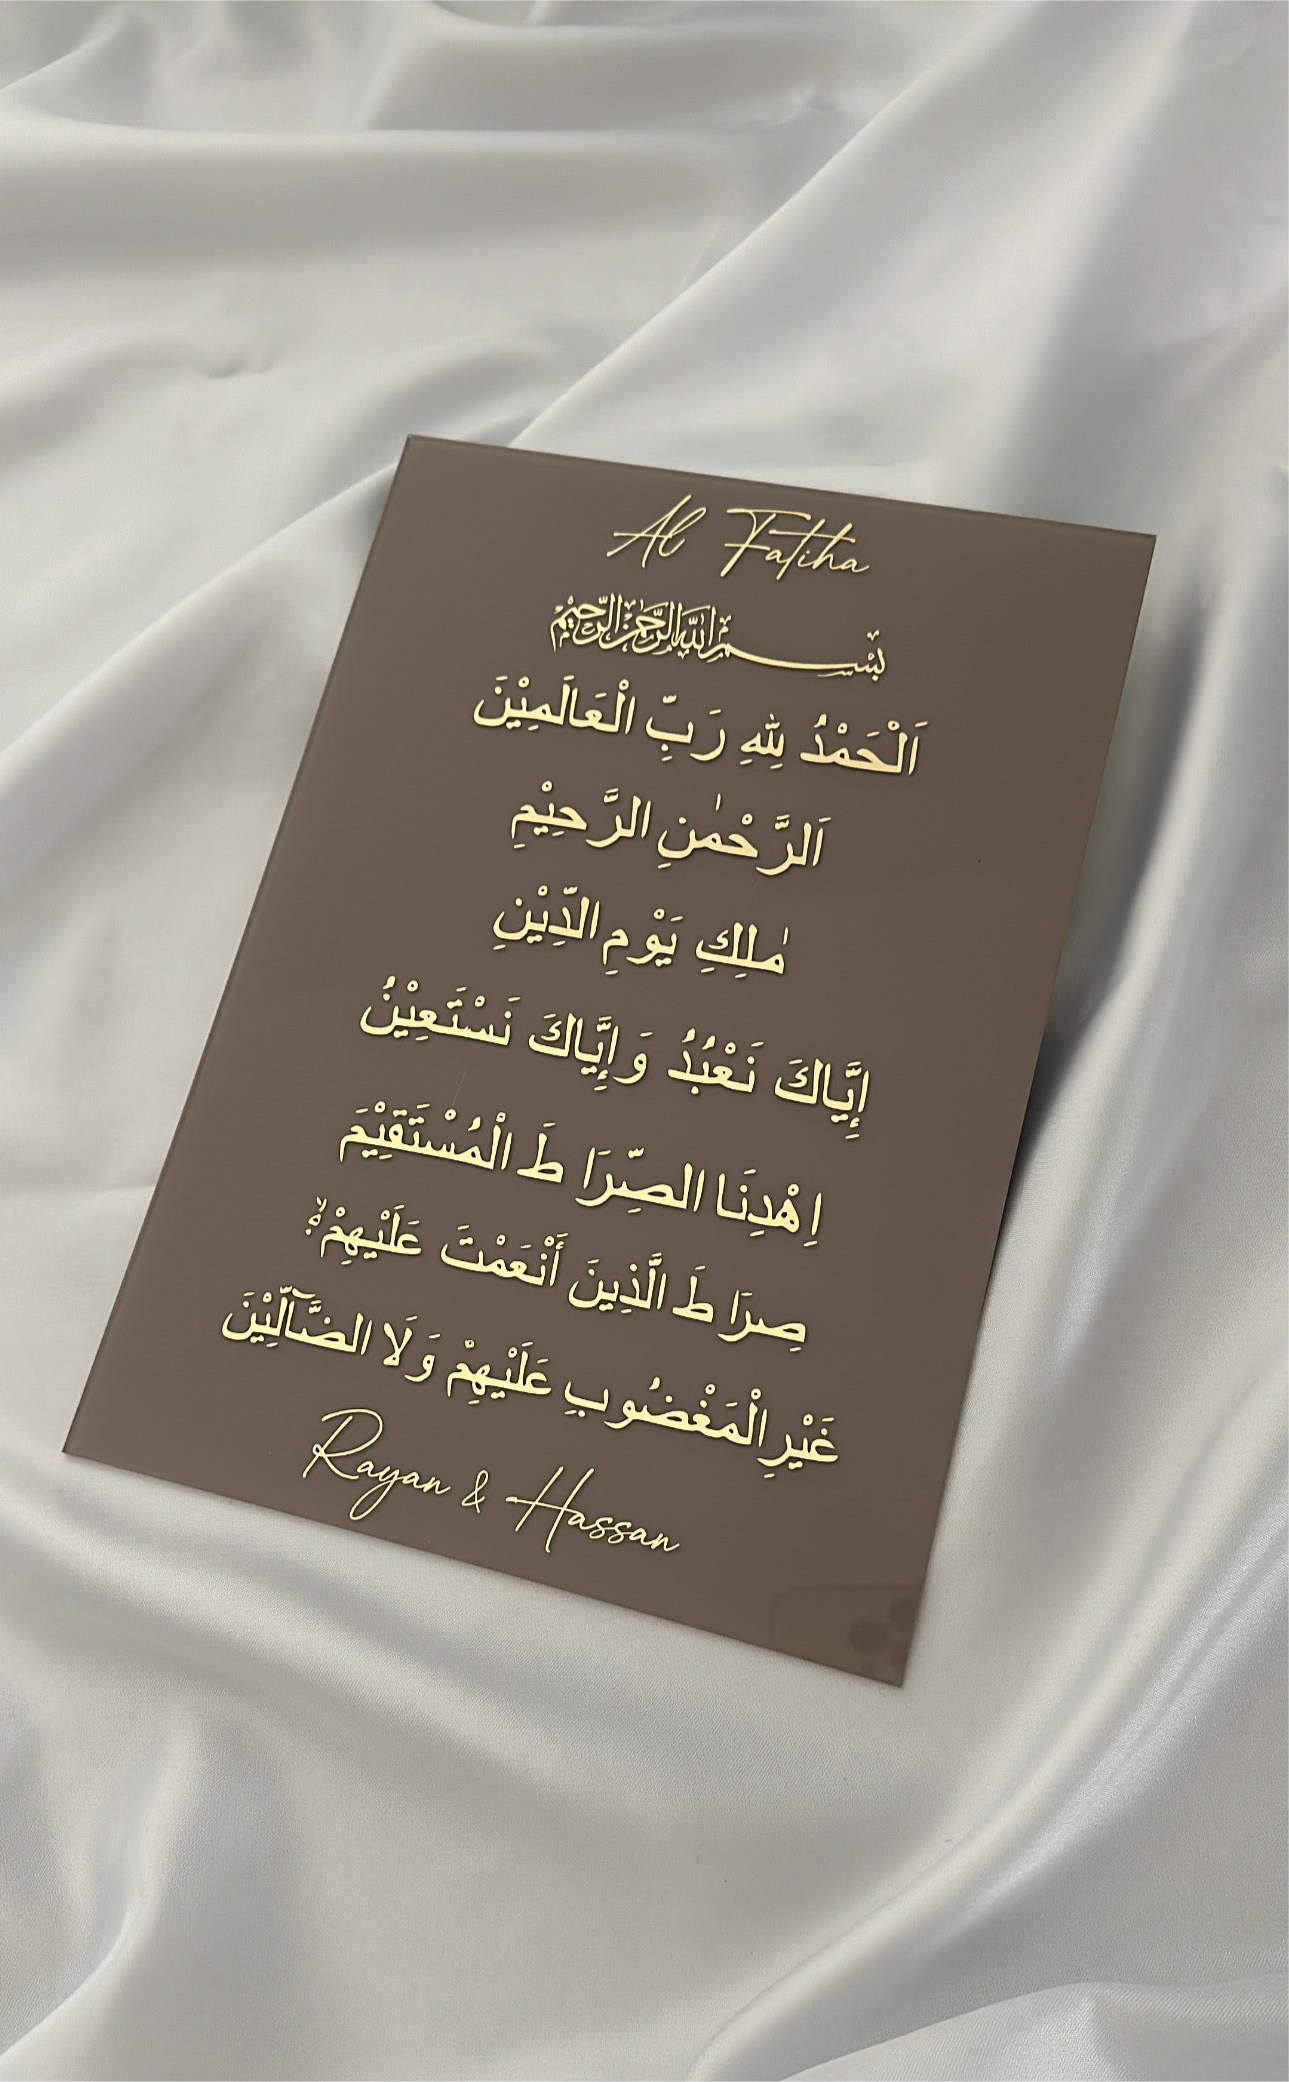 Al Fatiha
بسم الله الرحمن الرحيم
اَلْحَمْدُ لِلهِ رَبِّ الْعَالَمِيْنَ
اَلرَّحْمٰنِ الرَّحِيْمِ
مٰلِكِ يَوْمِ الدِّيْنِ
إِيَّاكَ نَعْبُدُ وَإِيَّاكَ نَسْتَعِيْنُ
اِهْدِنَا الصِّرَاطَ الْمُسْتَقِيْمَ
صِرَاطَ الَّذِينَ أَنْعَمْتَ عَلَيْهِمْ ۙ
غَيْرِ الْمَغْضُوبِ عَلَيْهِمْ وَلَا الضَّآلِّيْنَ
Rayan & Hassan